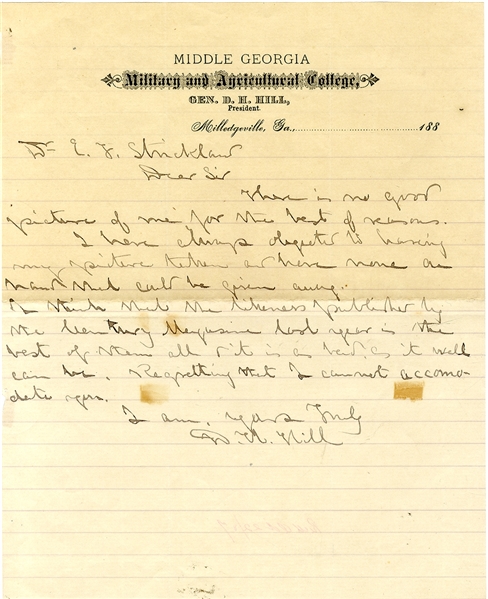 MIDDLE GEORGIA
Military and Agricultural College,
GEN. D. H. HILL,
President.
Milledgeville, Ga., 188
Dr E. F. Strickland
Dear Sir
There is no good
picture of me for the best of reasons.
I have always objected to having
my picture taken and have none on
hand that could be given away.
I think that the likeness published by
the Century Magazine last year is the
best of them all & it is as bad as it well
can be. Regretting that I cannot accomo-
date you.
I am, yours Truly
D. H. Hill